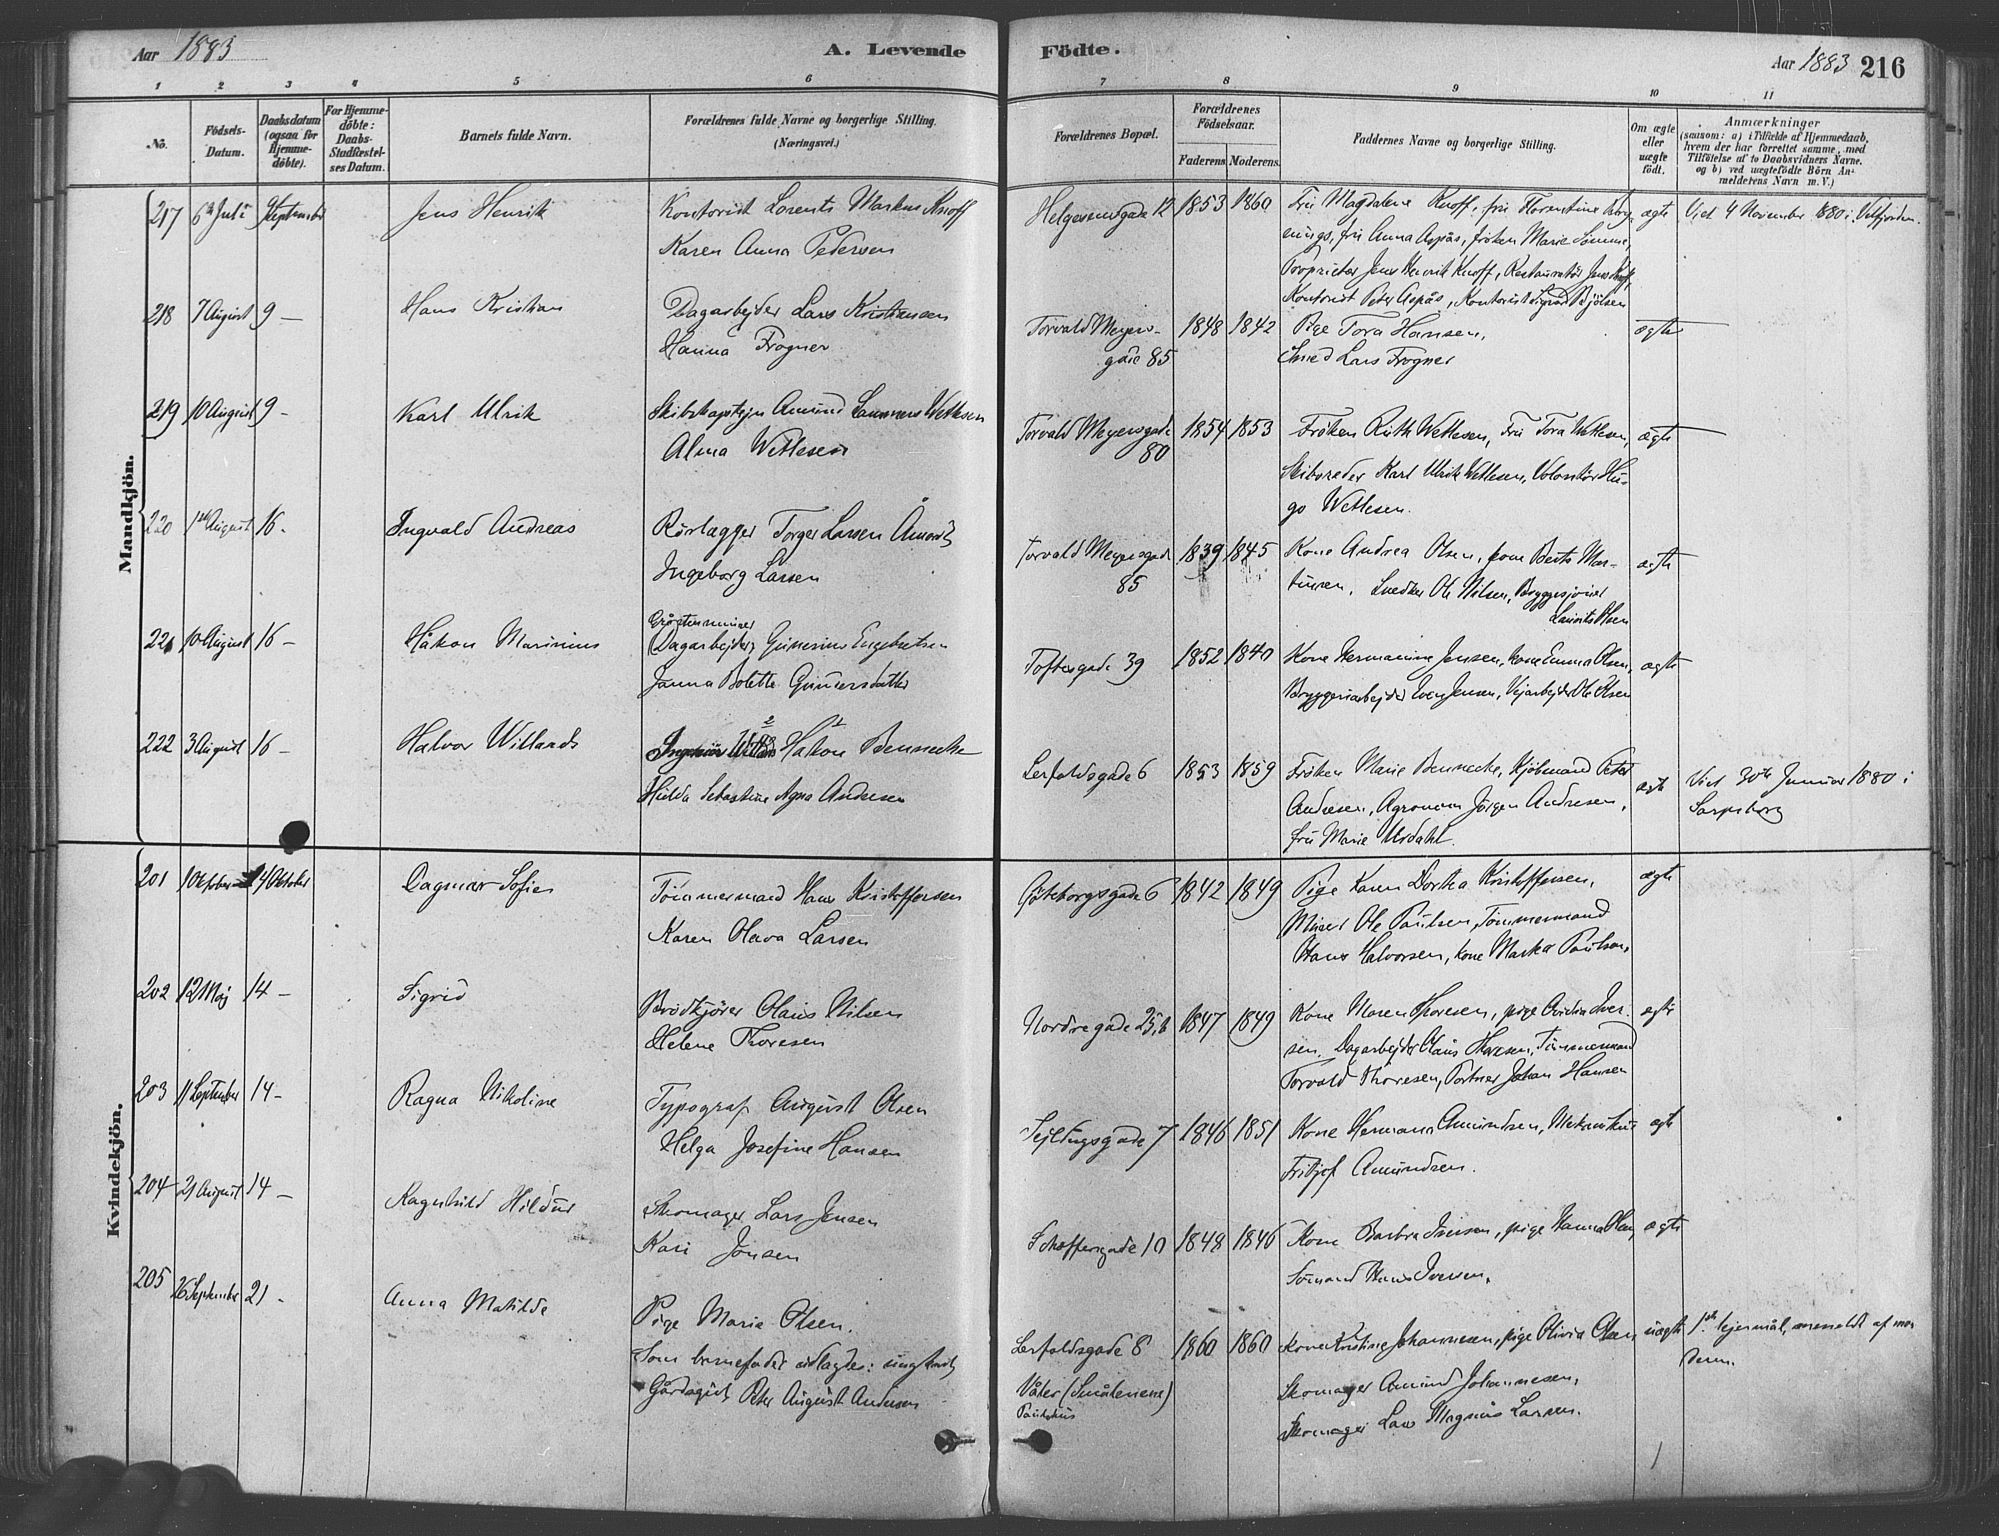 Aar 1883
A. Levende Födte.
Aar 1883 216
1 2 3 4 5 6 7 8 9 10 11
No.
Födsels-Datum.
Daabsdatum (ogsaa for Hjemme-döbte).
For Hjemme-döbte: Daabs-Stadfæstel-ses Datum.
Barnets fulde Navn.
Forældrenes fulde Navne og borgerlige Stilling.
(Næringsvei.)
Forældrenes Bopæl.
Forældrenes Födselsaar.
Faderens Moderens.
Faddernes Navne og borgerlige Stilling.
Om ægte eller uægte födt.
Anmærkninger
(saasom: a) i Tilfælde af Hjemmedaab,
hvem der har forrettet samme, med
Tilföielse af to Daabsvidners Navne.
og b) ved uægtefödte Börn An-
melderens Navn m. V.)
Mandkjön.
217 6 Juli 9 September Jens Henrik
Kontorist Lorents Markus Knoff
Karen Anna Pedersen
Helgesensgade 12 1853 1860
Fru Magdalene Knoff, fru Florentine
fru Anna Aspås, fröken Marie Sømme,
Proprietær Jens Henrik Knoff, Restauratör Jens Knoff,
Kontorist Peter Aspås, Kontorist
ægte Viet 4 November 1880 i Velfjorden.
218 7 August 9 — Hans Kristian
Dagarbejder Lars Kristiansen
Hanna Frogner
Torvald Meyers-
gade 85 1848 1842
Pige Tora Hansen,
Smed Lars Frogner
ægte
219 10 August 9 - Karl Ulrik
Skibskaptejn Amund Wetlesen
Alma Wetlesen
Torvald Meyersgade
80 1854 1853
Fröken Ruth Wetlesen, Fru Tora Wetlesen,
Skibsreder Karl Ulrik Wetlesen, Volontör Hu-
go Wetlesen.
ægte
220 1 August 16. Ingvald Andreas
Rörlægger Torger Larsen
Ingeborg Larsen
Torvald Meyersgade
85 1839 1845
Kone Andrea Olsen, kone Berte Mar-
tinsen, Snedker Ole Nilsen,
Laurits Olsen
ægte
221 10 August 16 — Håkon Marinius
(Dagarbejder) Gunerius Engebretsen
Janna Bolette Gundersdatter
Toftesgade 39 1852 1840
Kone Hermanine Jensen, kone Emma Olsen,
Bryggeriarbejder Iver Jensen, Vejarbejder Ole Olsen
ægte
222 3 August 16 — Halvor Willards
2 1
Håkon Bennecke
Hilda Sebastine Agna Andersen
Lerfaldsgade 6 1853 1859
Fröken Marie Bennecke, Kjöbmand Peter
Andresen, Agronom Jörgen Andresen,
fru Marie Urdahl.
ægte Viet 30te Januar 1880 i
Sarpsborg
Kvindekjön.
201 1 Oktober 14 Oktober Dagmar Sofie
Tömmermand Hans Kristoffersen
Karen Olava Larsen
Göteborgsgade 6 1842 1849
Pige Karen Dortea Kristoffersen,
Murer Ole Paulsen, Tömmermand
Hans Halvorsen, kone Martea Paulsen,
ægte
202 12 Maj 14 — Sigrid
Brödkjörer Olaus Nilsen
Helene Thoresen
Nordregade 25,b 1847 1849
Kone Maren Thoresen, pige Iver-
sen, Dagarbejder Olaus Hansen, Tömmermand
Torvald Thoresen, Portner Johan Hansen
ægte
203 11 September 14 - Ragna Nikoline
Typograf August Olsen
Helga Josefine Hansen
Sejldugsgade 7 1846 1851
Kone Hermana Amundsen, Mekanikus
Fritjof Amundsen.
ægte
204 21 August 14 — Ragnhild Hildur
Skomager Lars Jensen
Kari Jonsen
Schæffersgade 10 1848 1846
Kone Barbra Iversen, pige Hanna Olsen,
Sömand Hans Iversen.
ægte
205 26 September 21 - Anna Matilde
Pige Maria Olsen.
Som barnefader udlagdes: ungkarl,
Gårdsgut Peter August Andersen
Lerfaldsgade 8 1860 1860
Våler (Smålenene)
Kone Kristine Johannesen, pige Olivia Olsen,
Skomager Amund Johannesen,
Skomager Lars Magnus Larsen.
uægte 1ste lejermål, anmeldt af mo-
deren.